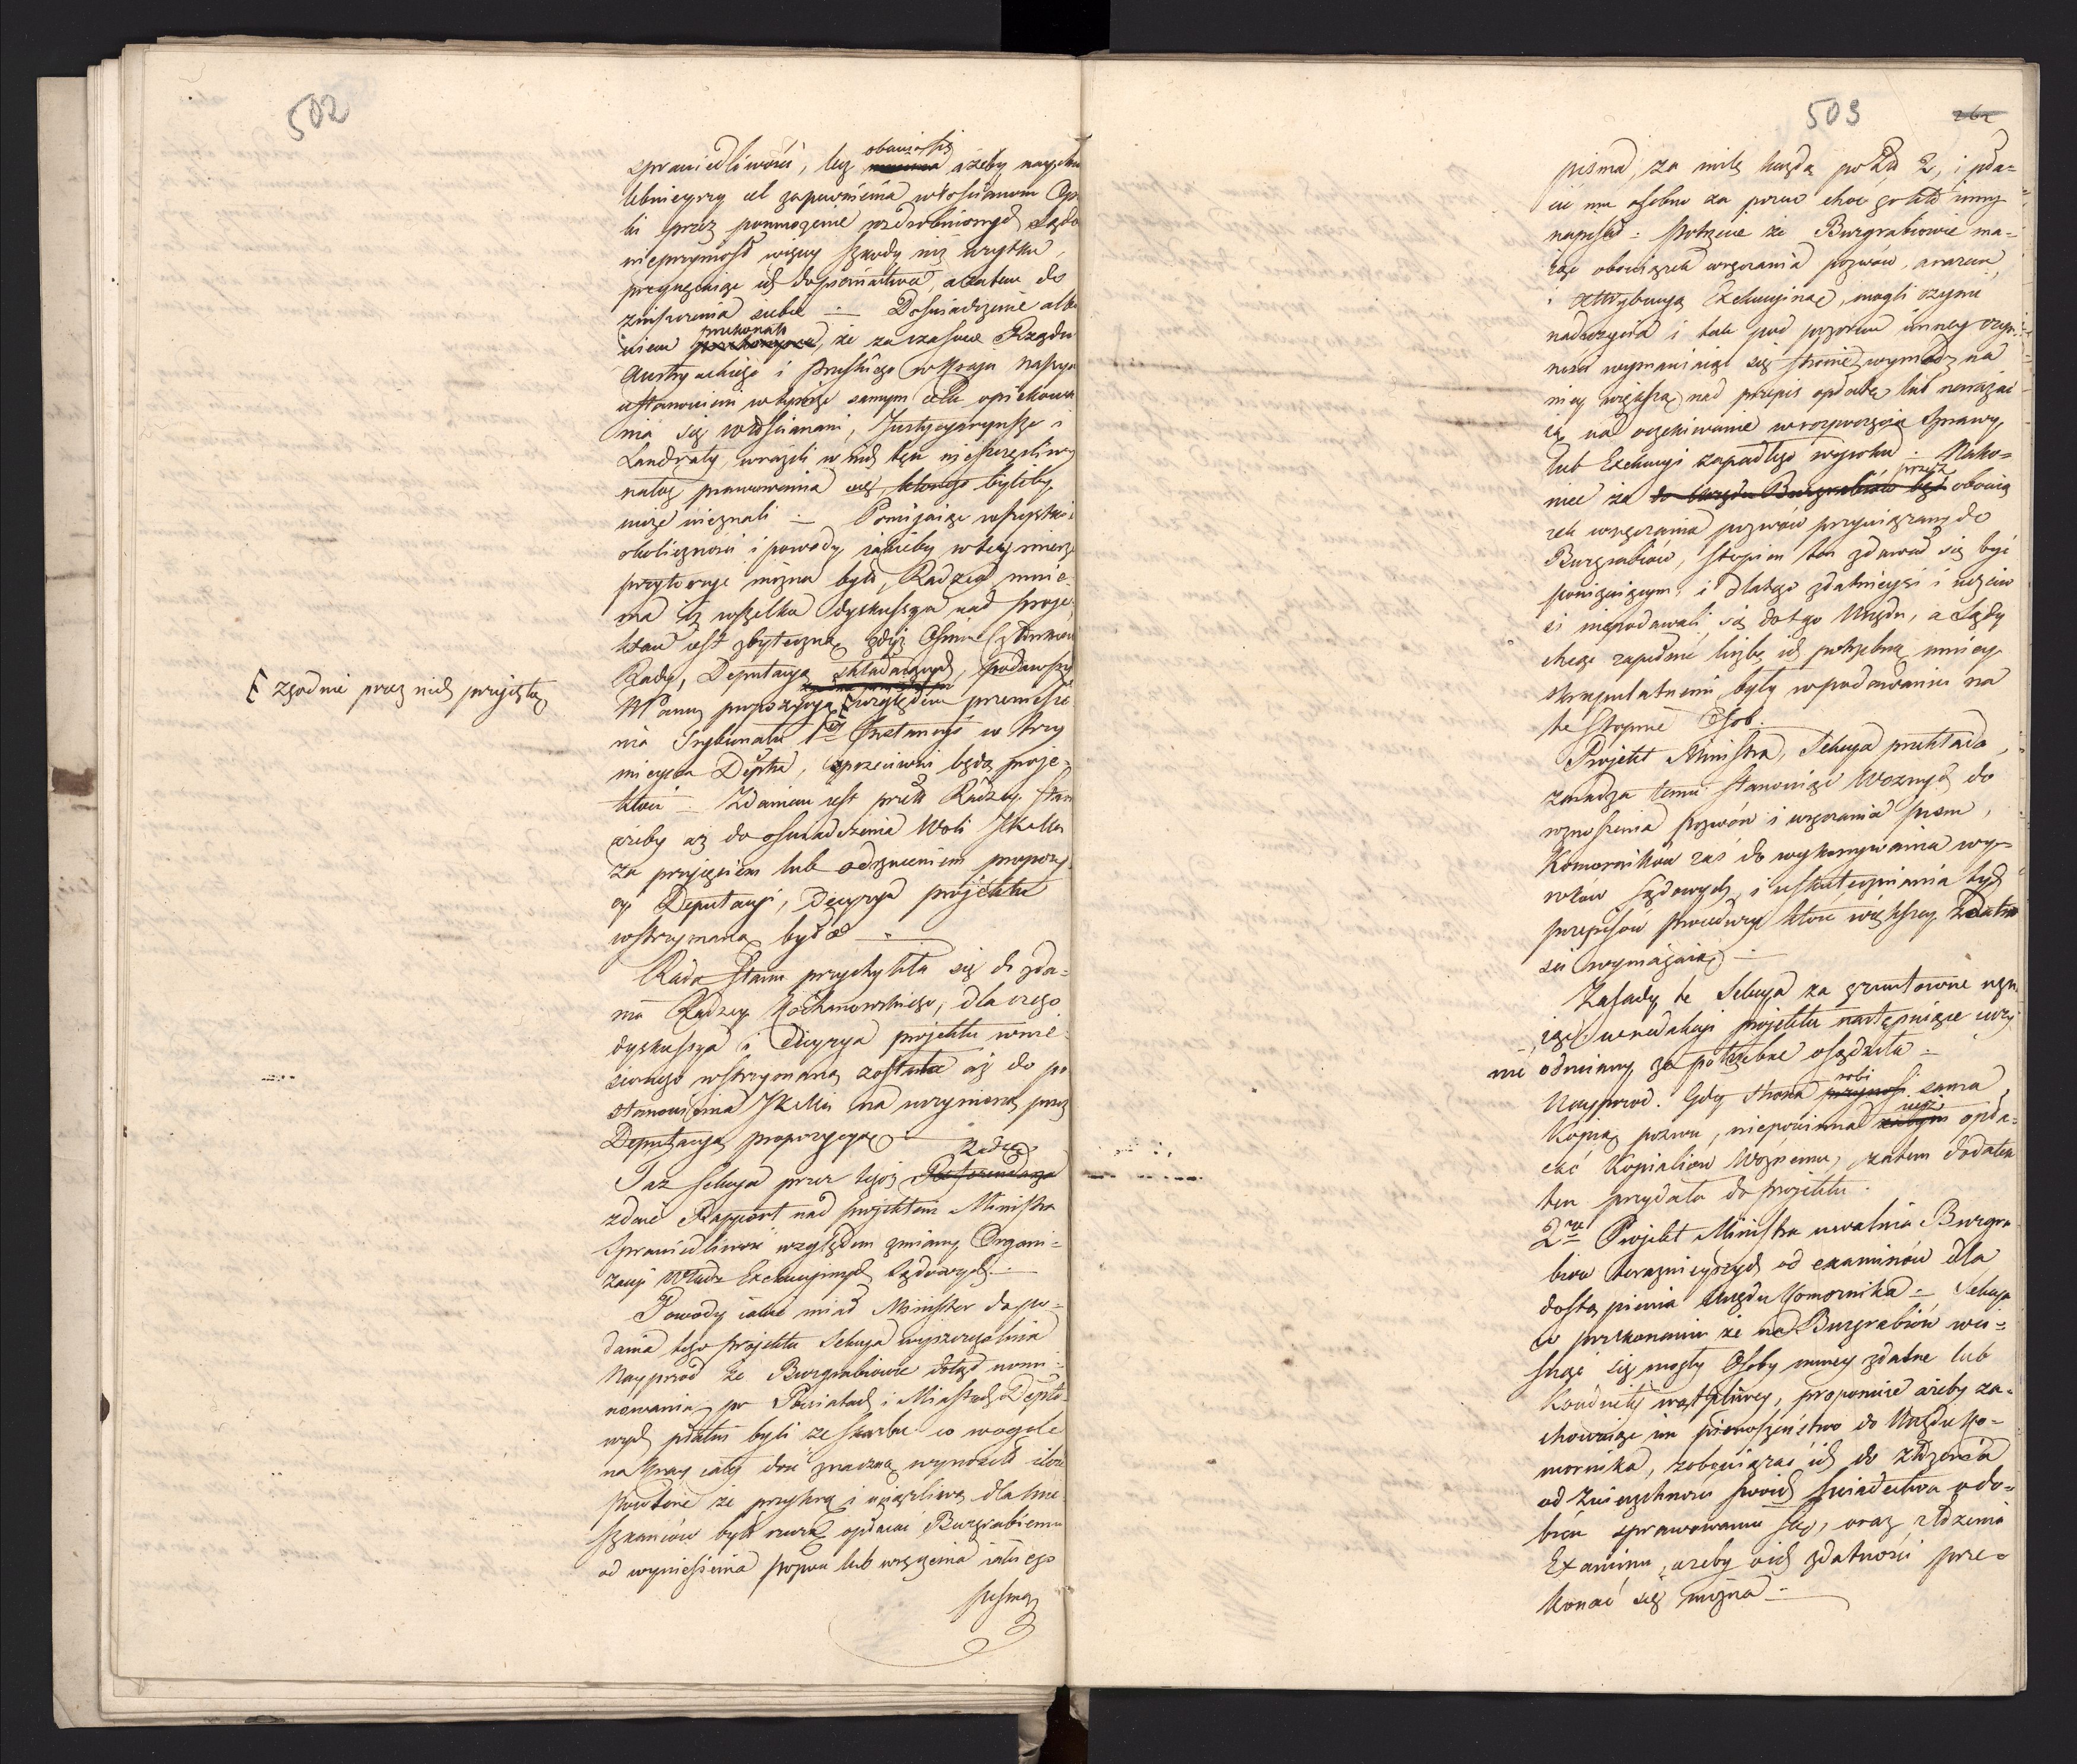 502
sprawiedliwości, lecz obawia się ażeby nayzba
wienieyszy cel zapewnienia włościanom Opie
ki przez pomnożenie pozdrobnionych Sądów
nieprzyniosł więcey szkody niż użytku,
przyuczaiąc ich do pieniactwa, a zatem do
zniszczenia siebie — Doświadczenie albo
wiem przekonało, że za czasów Rządu
Austryackiego i Pruskiego w Kraju naszym
ustanowieni w tymże samym celu opiekowa
nia się włościanami, Justycyaryusze i
Landraty, wrazili w nich ten nieszczęśliwy
nałog prawowania się, którego byliby
może nieznali — Pomijaiąc wszystkie
okoliczności i powody iakieby w tey mierze
przytoczyć można było, Radzca mnie
ma iż wszelka dyskussya nad Proje
ktem iest zbyteczną, gdyż Ośmiu Członków
Rady, Deputacyą składaiących, podawszy
NPanu propozycyą względem przeniesie
nia Trybunałów 1ey Instancyi w trzy
miejsca Dptu, przeciwni będą proje-
ktowi — Zdaniem iest przeto Radzcy Stanu
ażeby aż do oświadczenia Woli JKMci
za przyjęciem lub odrzuceniem propozy
cyi Deputacyi, Decyzya projektu
wstrzymaną była —
Rada Stanu przychyliła się do zda-
nia Radzcy Kochanowskiego, dla czego
dyskussya i Decyzya projektu wnie
sionego wstrzymaną została aż do po
stanowienia JKMci na uczynioną przez
Deputacyą propozycyą —
Taż Sekcya przez tegoż Radzcę Referendarza
zdaie Rapport nad projektem Ministra
Sprawiedliwości względem zmiany Organi-
zacyi Władz Exekucyinych Sądowych —
Powody iakie miał Minister do po-
dania tego projektu Sekcya wyszczególnia
Nayprzod że Burgrabiowie dotąd nomi-
nowani po Powiatach i Miastach Depto-
wych płatni byli ze Skarbu co w ogóle
na Kray cały dosć znaczną wynosiło ilość
Powtore że przykrą i uciążliwą dla mie-
szkańców było rzeczą opłacać Burgrabiemu
od wyniesienia Pozwu lub wręczenia iakiego
pisma
[ zgodnie przez nich przyiętą
503
pisma, za milę każdą po Złp 2, i pła-
cić mu osobno za pozew choć go kto inny
napisał – Potrzecie że Burgrabiowie ma-
iąc obowiązek wręczania pozwów, a razem
Attrybucyą Exekucyiną, mogli czynić
nadużycia i tak pod pozorem inney czyn
ności wymawiaiąc się stronie wymodz na
niey większą nad przepis opłatę lub narażać
ią na oczekiwanie w rozpoczęciu Sprawy,
lub Exekucyi zapadłego wyroku – Nako-
niec że przez obowią
zek wręczania pozwów przywiązany do
Burgrabiów, Stopień ten zdawał się być
poniżaiącym i dlatego zdatnieysi i uczciw
si niepodawali się do tego Urzędu, a Sądy
chcąc zapełnić liczbę ich potrzebną mniey
skrupulatnemi były w podawaniu na
te Stopnie Osob.
Projekt Ministra, Sekcya przekłada,
zaradza temu stanowiąc Woznych do
wznoszenia pozwów i wręczania pism,
Komorników zaś do wykonywania wy-
roków Sądowych, i uskuteczniania tych
przepisów procedury które większey zdatno
ści wymagaią –
Zasady te Sekcya za gruntowne uzna
iąc w redakcyi projektu następuiące uczy
nić odmiany za potrzebne osądziła –
Nayprzod. Gdy Strona robi sama
Kopią pozwu, niepowinna więc opła-
cać Kopialiow Woznemu, zatem dodatek
ten przydała do projektu.
2re Projekt Ministra uwalnia Burgra
biow teraznieyszych od examinów dla
dostąpienia Urzędu Komornika – Sekcya
w przekonaniu że na Burgrabiów wci-
snąć się mogły Osoby mniey zdatne lub
Konduity wątpliwey, proponuie ażeby za-
chowuiąc im pierwszeństwo do Urzędu Ko-
mornika, zobowiązać ich do złożenia
od Zwierzchności swoich świadectwa o do-
brem sprawowaniu się, oraz złożenia
Examinu, ażeby o ich zdatności prze-
konać się można –